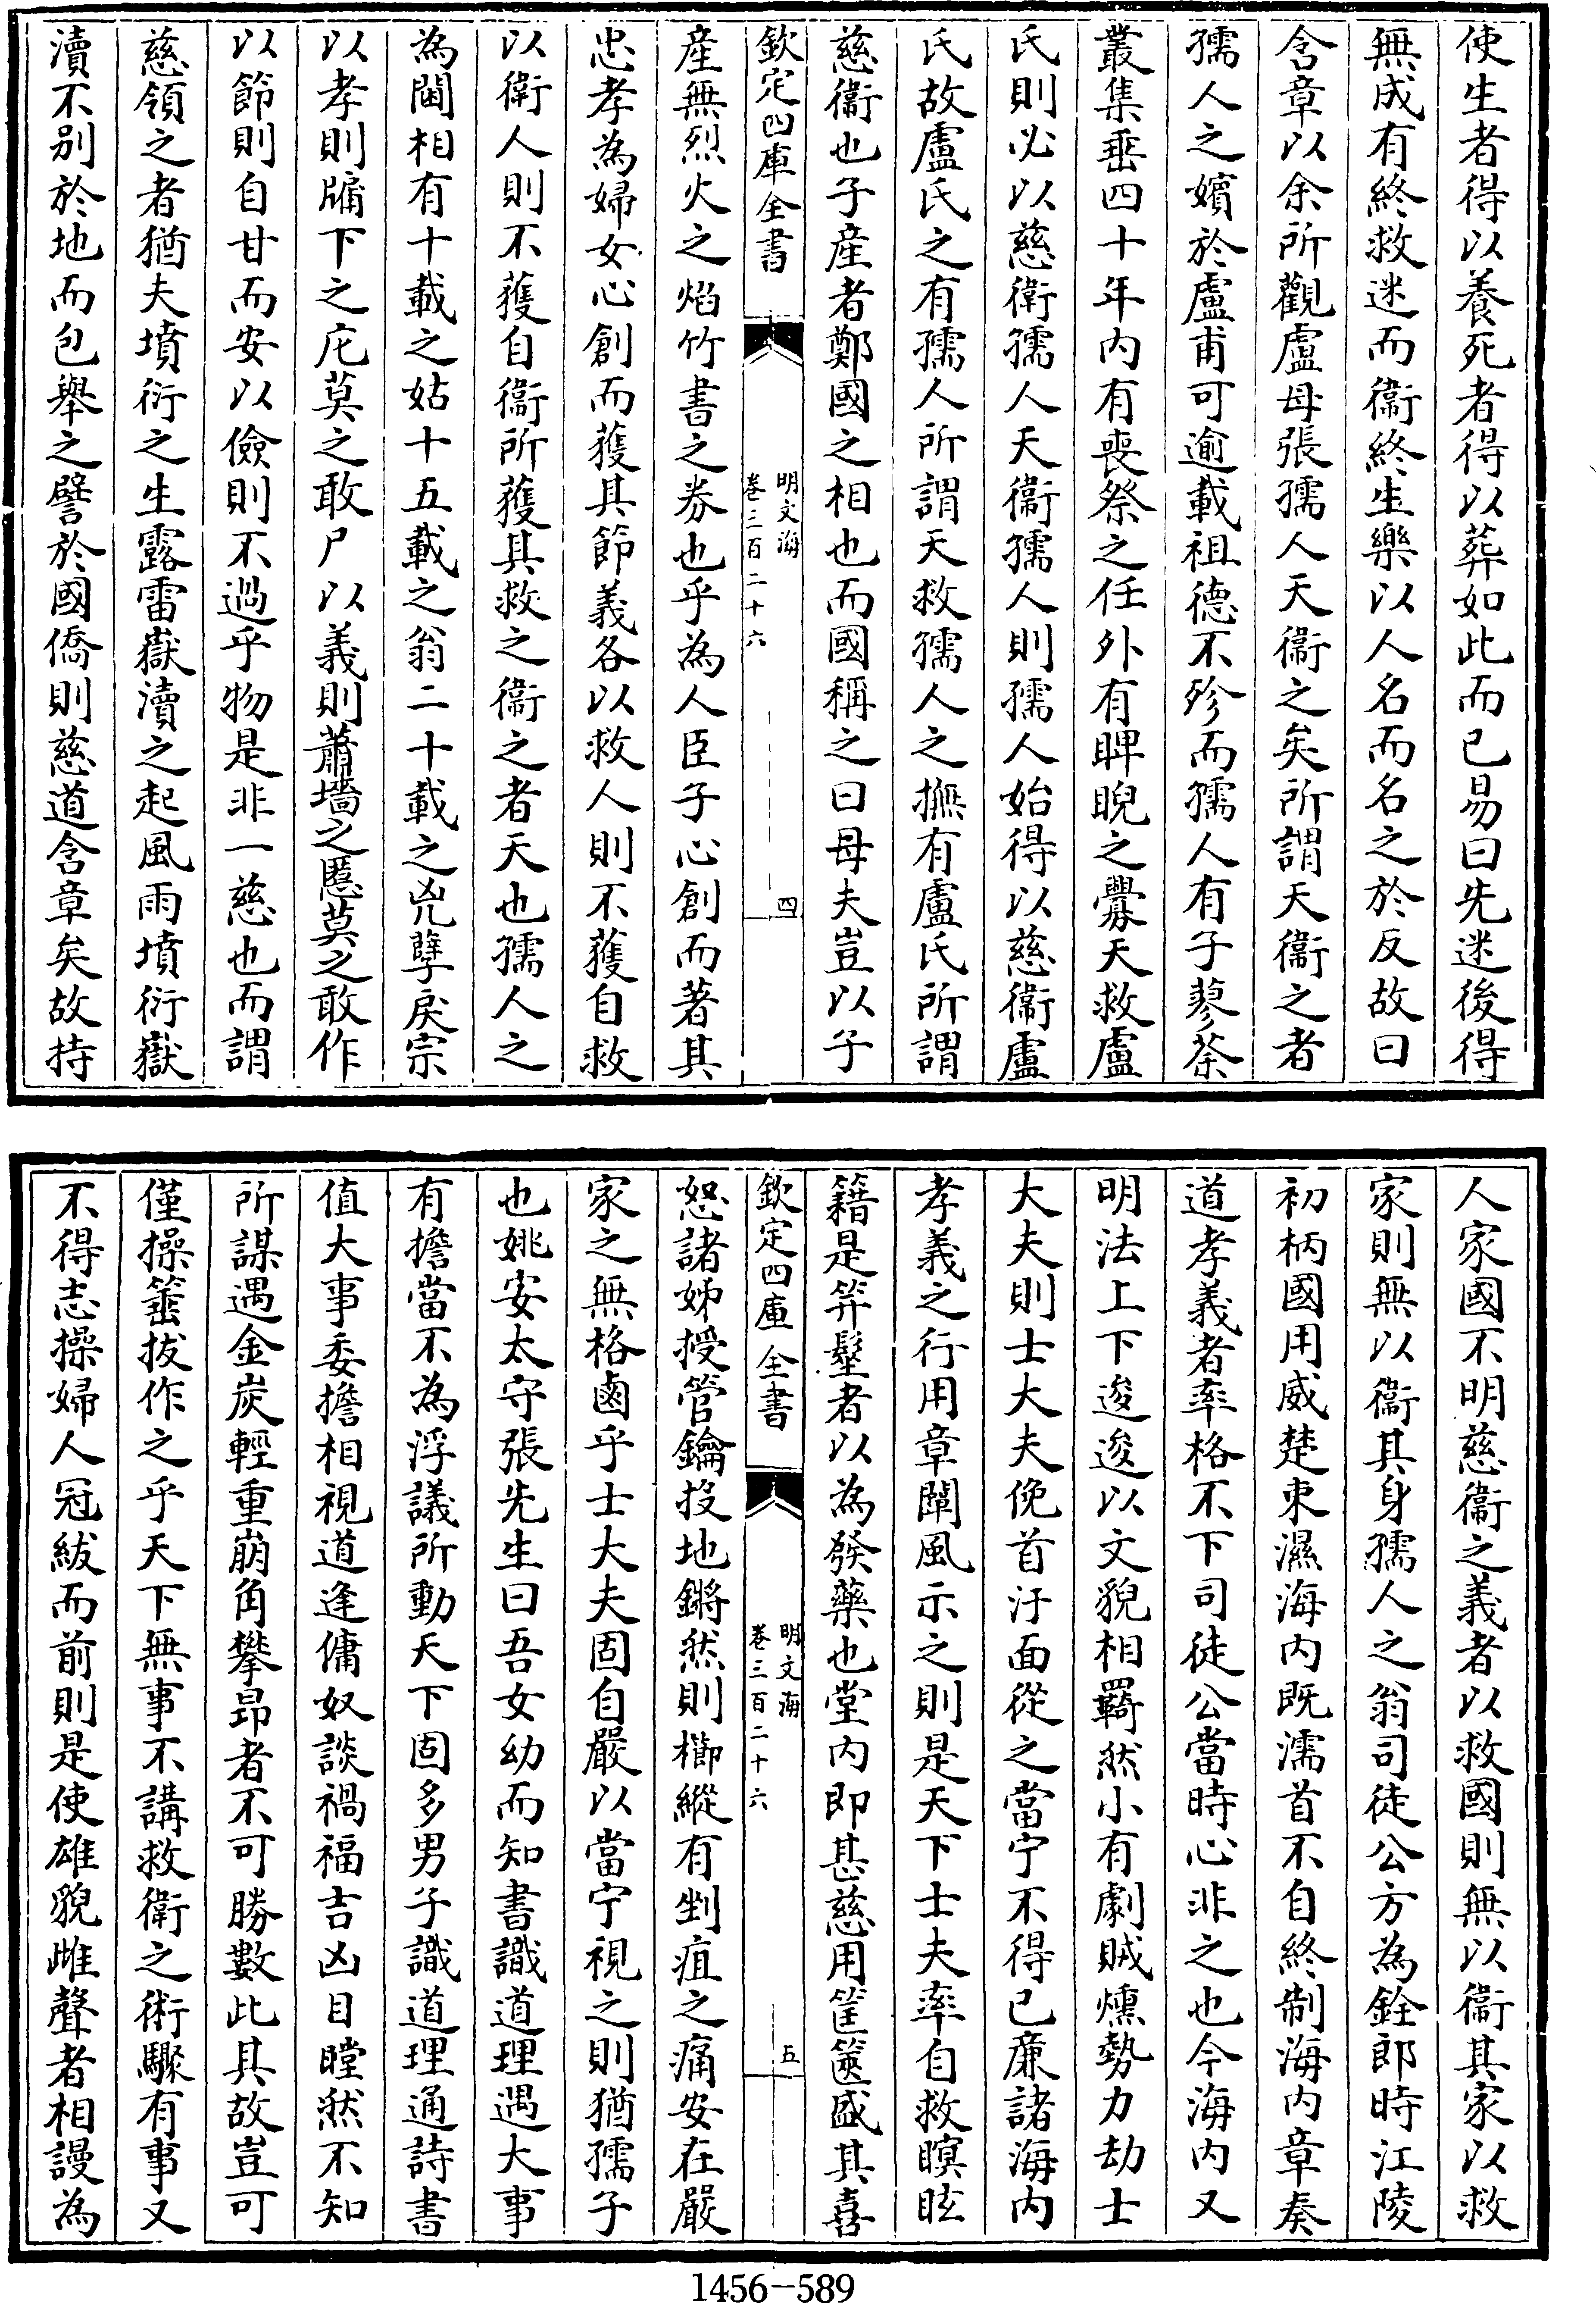 使生者得以養死者得以葬如此而已易曰先迷後得
無成有終救迷而衞終生樂以人名而名之於反故曰
含章以余所觀盧母張孺人天衞之矣所謂天衞之者
孺人之嬪於盧甫可逾載祖德不殄而孺人有子蓼荼
叢集垂四十年内有喪祭之任外有睥睨之釁天救盧
氏則必以慈衛孺人天衞孺人則孺人始得以慈衞盧
氏故盧氏之有孺人所謂天救孺人之撫有盧氏所謂
慈衞也子産者鄭國之相也而國稱之曰母夫豈以子
欽定四庫全書 明文海 卷三百二十六 四
産無烈火之焰竹書之劵也乎為人臣子心創而著其
忠孝為婦女心創而獲其節義各以救人則不獲自救
以衛人則不獲自衞所獲其救之衞之者天也孺人之
為閫相有十載之姑十五載之翁二十載之兇孽戾宗
以孝則牖下之庀莫之敢尸以義則蕭墻之慝莫之敢作
以節則自甘而安以儉則不過乎物是非一慈也而謂
慈領之者猶夫墳衍之生露雷嶽瀆之起風雨墳衍嶽
瀆不别於地而包舉之譬於國僑則慈道含章矣故持
人家國不明慈衞之義者以救國則無以衞其家以救
家則無以衞其身孺人之翁司徒公方為銓郎時江陵
初柄國用威楚束濕海内既濡首不自終制海内章奏
道孝義者率格不下司徒公當時心非之也今海内又
明法上下逡逡以文貌相羈然小有劇賊燻勢力劫士
大夫則士大夫俛首汙面從之當宁不得已亷諸海内
孝義之行用章闡風示之則是天下士夫率自救瞑眩
籍是筓髽者以為發藥也堂内即甚慈用筐篋盛其喜
欽定四庫全書 明文海 卷三百二十六 五
怒諸姊授管鑰投地鏘然則櫛縰有剉疽之痛安在嚴
家之無格鹵乎士大夫固自嚴以當宁視之則猶孺子
也姚安太守張先生曰吾女幼而知書識道理遇大事
有擔當不為浮議所動天下固多男子識道理通詩書
值大事委擔相視道逢傭奴談禍福吉凶目瞠然不知
所謀遇金炭輕重崩角攀昂者不可勝數此其故豈可
僅操箠拔作之乎天下無事不講救衛之術驟有事又
不得志操婦人冠紱而前則是使雄貌雌聲者相謾為
1456-589